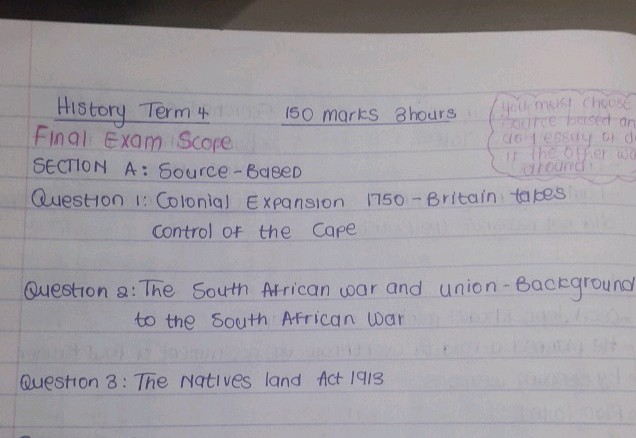 History Term 4 150 marks 3hours
Final Exam Scope
SECTION A: Source-Based
Question 1: Colonial Expansion 1750 - Britain takes
control of the Cape
Question 2: The South African war and union - Background
to the South African War
Question 3: The Natives land Act 1913
you must choose
source based an
any essay or d
it the other wa
around